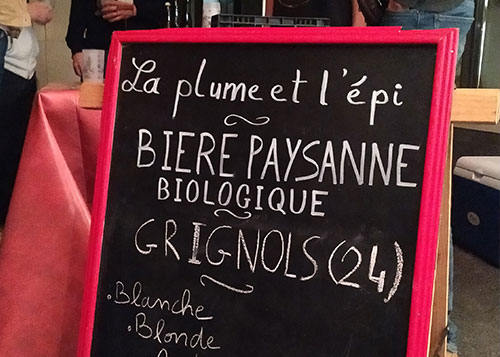 La plume et l'épi
BIERE PAYSANNE
BIOLOGIQUE
GRIGNOLS (24)
. Blanche
. Blonde